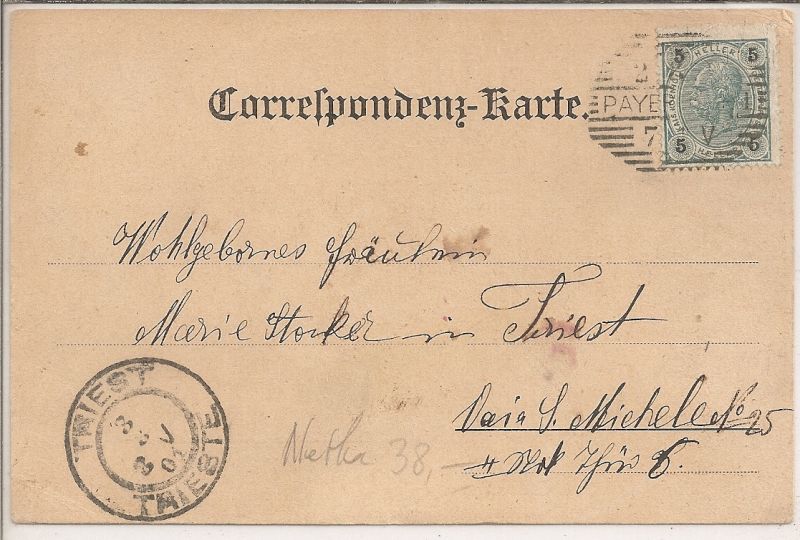 Correspondenz-Karte.
5 HELLER 5
PAYE
7 V
5 5
Wohlgebornes Fräulein
Marie Stocker in Triest
Vaia S. Michele No 25
II Stok Thür 6.
TRIEST
8 V
TRIESTE
38,-